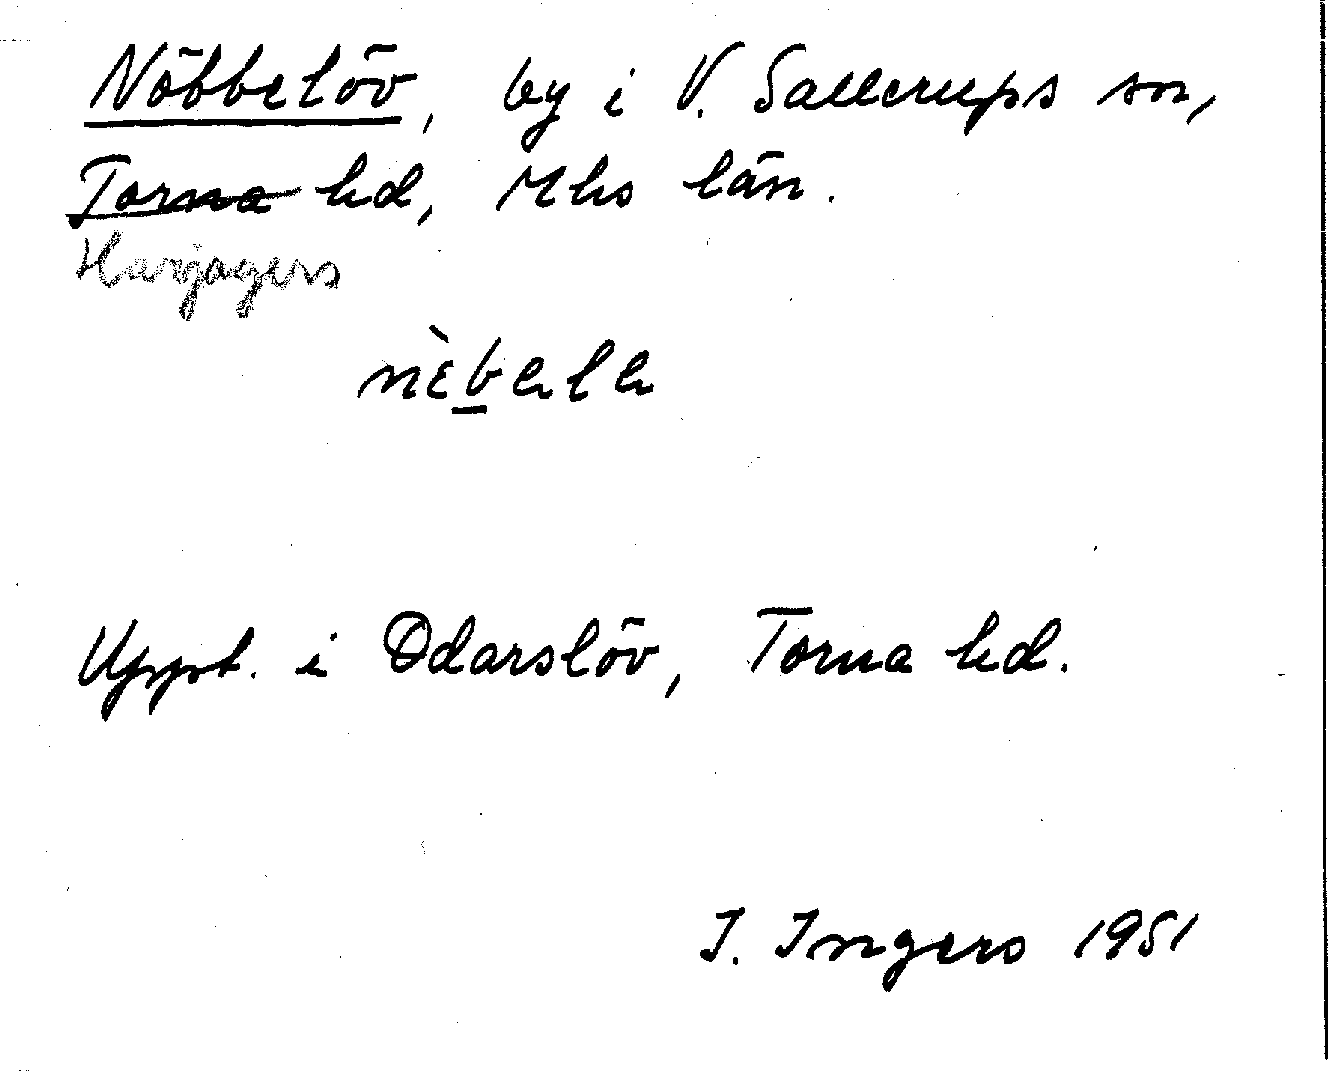 Nöbbelöv, by i V. Sallerups sn,
Torna hd, Mhs län.
Harjagers
nɛ̀bala
Uppt. i Odarslöv, Torna hd.
I. Ingers 1951